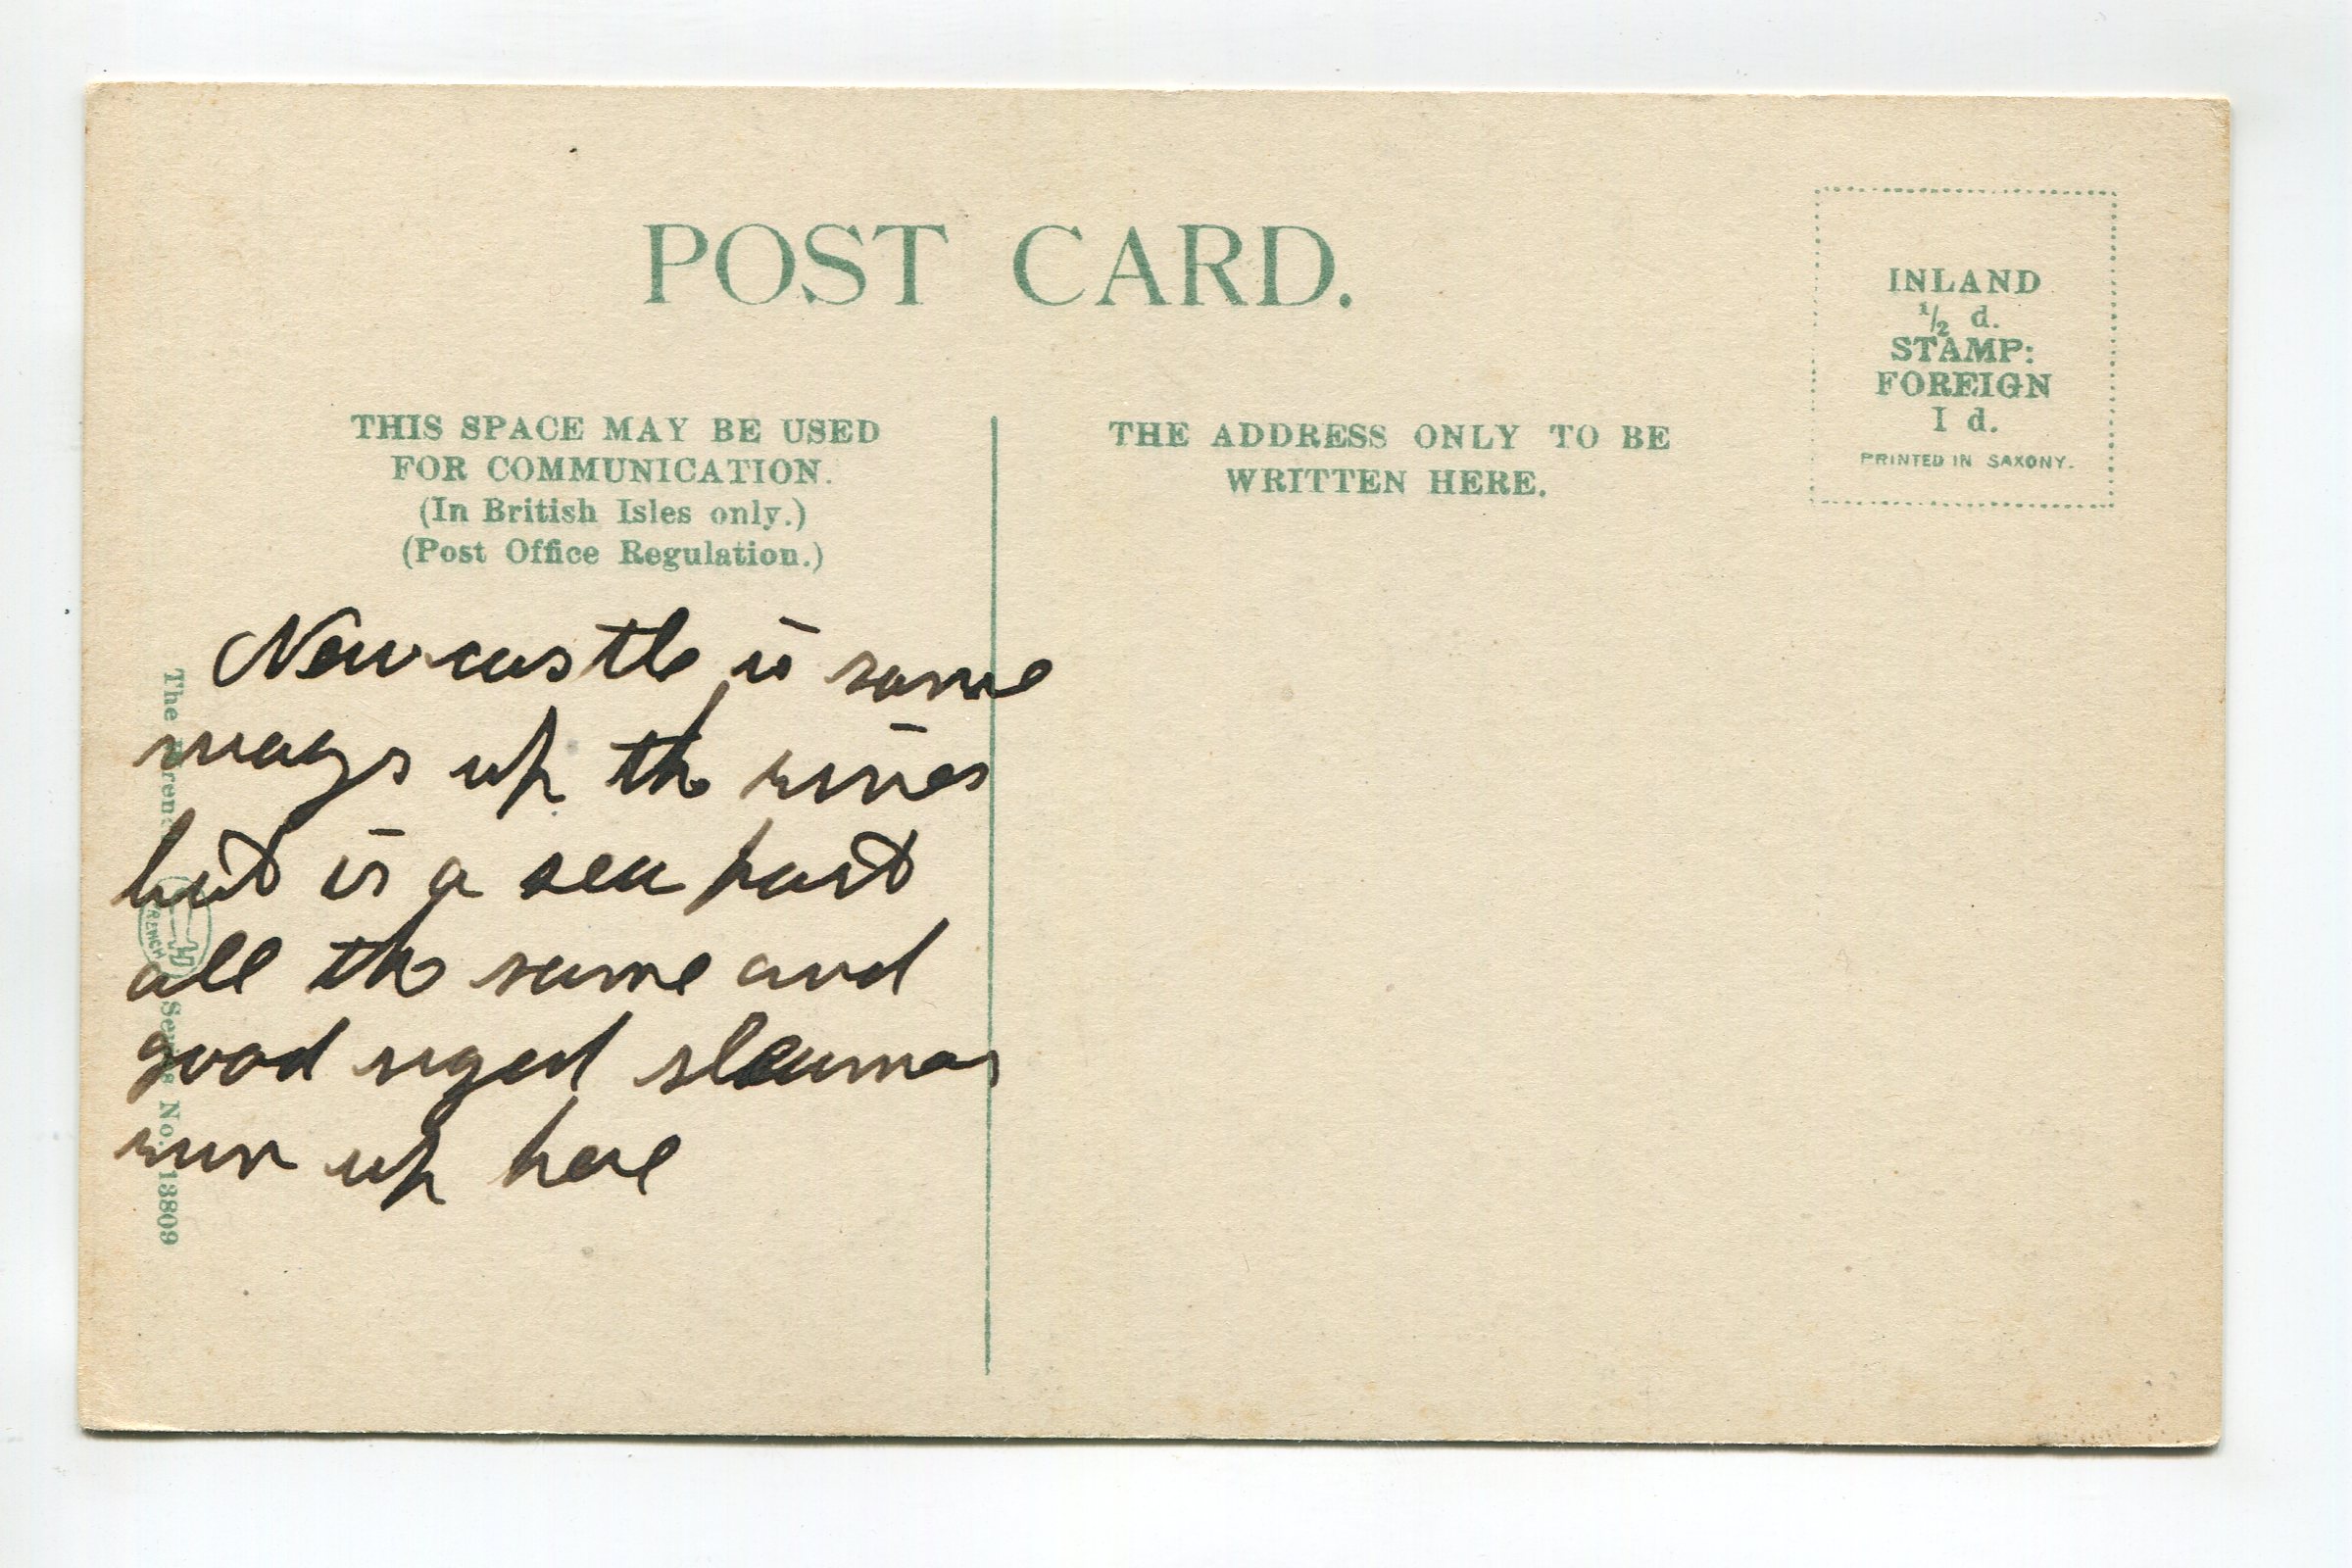 POST CARD.
INLAND
½ d.
STAMP:
FOREIGN
1 d.
PRINTED IN SAXONY.
THIS SPACE MAY BE USED
FOR COMMUNICATION.
(In British Isles only.)
(Post Office Regulation.)
THE ADDRESS ONLY TO BE
WRITTEN HERE.
Newcastle is some
ways up the river
but is a sea port
all the same and
good sized steamers
run up here
The Series No. 13809
FRENCH